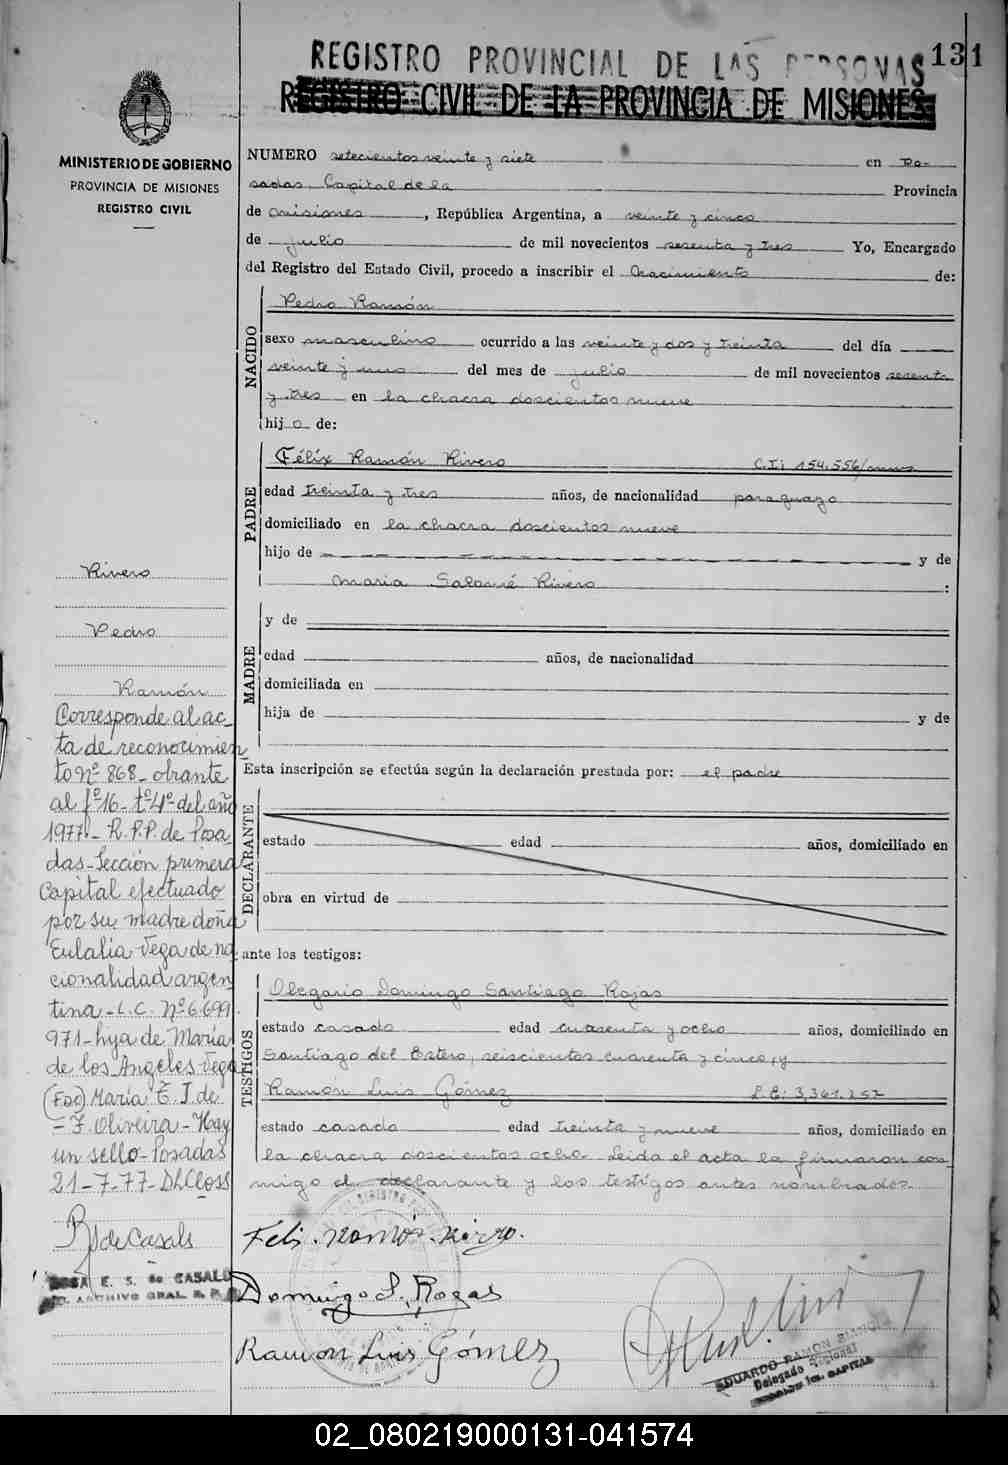 REGISTRO PROVINCIAL DE LAS PERSONAS 131
REGISTRO CIVIL DE LA PROVINCIA DE MISIONES
MINISTERIO DE GOBIERNO
PROVINCIA DE MISIONES
REGISTRO CIVIL
NUMERO setecientos veinte y siete en Po-
sadas, Capital de la Provincia
de misiones, República Argentina, a veinte y cinco
de julio de mil novecientos sesenta y tres Yo, Encargado
del Registro del Estado Civil, procedo a inscribir el Nacimiento de:
NACIDO
Pedro Ramón
sexo masculino ocurrido a las veinte y dos y treinta del día
veinte y uno del mes de julio de mil novecientos sesenta
y tres en la chacra doscientos nueve
hijo de:
PADRE
Félix Ramón Rivero C.I: 154.556/mnes
edad treinta y tres años, de nacionalidad paraguayo
domiciliado en la chacra doscientos nueve
hijo de y de
Maria Salomé Rivero :
MADRE
y de
edad años, de nacionalidad
domiciliada en
hija de y de
Esta inscripción se efectúa según la declaración prestada por: el padre
DECLARANTE
estado edad años, domiciliado en
obra en virtud de
ante los testigos:
TESTIGOS
Olegario Domingo Santiago Rojas
estado casado edad cuarenta y ocho años, domiciliado en
Santiago del Estero, seiscientos cuarenta y cinco, y
Ramón Luis Gómez L.E: 3,361.252
estado casado edad treinta y nueve años, domiciliado en
la chacra doscientos ocho. Leida el acta la firmaron con-
migo el declarante y los testigos antes nombrados.
Rivero
Pedro
Ramón
Corresponde al ac-
ta de reconocimien
to nº 868- obrante
al fº 16- tº 4º del año
1977- R.P.P. de Posa
das- Sección primera
Capital efectuado
por su madre doña
Eulalia Vega de na
cionalidad argen
tina- L.C. Nº 6.699.
971- hija de María
de los Angeles Vega
(Fdo) María E. J. de
F. Oliveira- Hay
un sello- Posadas
21-7-77-
de Casals
E. S. de CASALS
ARCHIVO GRAL. R. P.
Feli. Ramón. Rivero.
Domingo S. Rogas
Ramon Luis Gómez
EDUARDO RAMON BIANCHI
Delegado Regional
CAPITAL
02_080219000131-041574